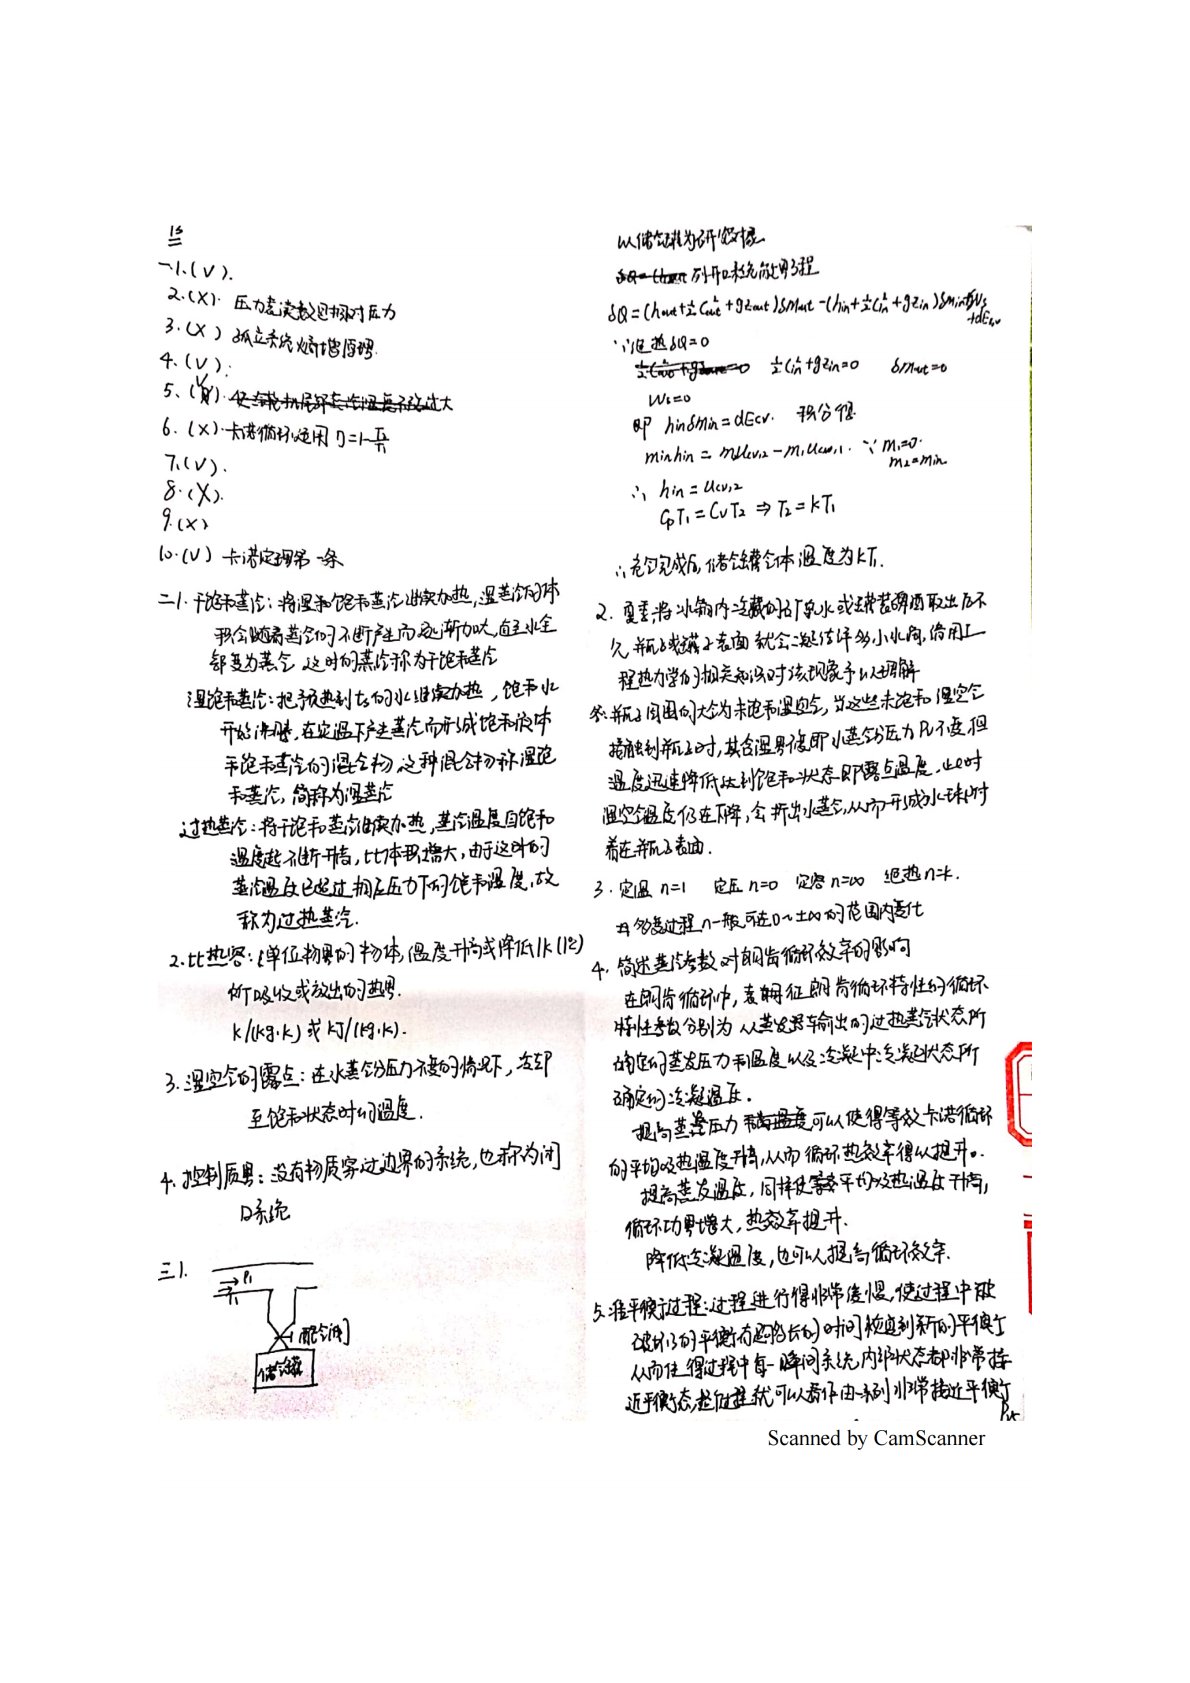 15
一1.(√).
2.(X). 压力表读数是相对压力
3.(X) 孤立系统熵增原理.
4.(√).
5.(√).
6.(X).卡诺循环适用 η=1-
7.(√).
8.(X).
9.(X)
10.(√) 卡诺定理第一条
二1.干饱和蒸汽：将湿饱和蒸汽继续加热,湿蒸汽的体
积会随着蒸汽的不断产生而逐渐加大,直至水全
部变为蒸汽,这时的蒸汽称为干饱和蒸汽
湿饱和蒸汽:把预热到ts的水继续加热，饱和水
开始沸腾,在定温下产生蒸汽而形成饱和液体
和饱和蒸汽的混合物,这种混合物称湿饱
和蒸汽，简称为湿蒸汽
过热蒸汽：将干饱和蒸汽继续加热,蒸汽温度自饱和
温度起不断升高，比体积增大，由于这时的
蒸汽温度已超过相应压力下的饱和温度，故
称为过热蒸汽.
2.比热容：单位物量的物体,温度升高或降低1K(1℃)
所吸收或放出的热量.
K/(kg·K) 或 KJ/(kg·K).
3.湿空气的露点：在水蒸气分压力不变的情况下，冷却
至饱和状态时的温度.
4.控制质量：没有物质穿过边界的系统,也称为闭
口系统
三1.
P1
T1
配气阀
储气罐
以储气罐为研究对象.
列开口系统能量方程
δQ=(hout+½C²out+gZout)δmout-(hin+½C²in+gZin)δmin+δWs
+dEcv
∵绝热δQ=0
½C²in+gZin=0 δmout=0
Ws=0
即 hinδmin=dEcv. 积分得
minhin = m2ucv,2-m1ucv,1. ∵ m1=0.
m2=min.
∴ hin=ucv,2
CpT1=CvT2 ⇒ T2=kT1
∴充气完成后,储气罐气体温度为kT1.
2.夏季将冰箱内冷藏的矿泉水或罐装啤酒取出后不
久,瓶子或罐子表面就会凝结许多小水滴,借用工
程热力学的相关知识对该现象予以理解
答:瓶子周围的大气为未饱和湿空气,当这些未饱和湿空气
接触到瓶子时,其含湿量不变即水蒸气分压力Pv不变,但
温度迅速降低达到饱和状态即露点温度，此时
湿空气温度仍在下降,会析出水蒸气,从而形成水珠附
着在瓶子表面.
3.定温 n=1 定压 n=0 定容 n=∞ 绝热 n=k.
多变过程n一般可在0~±∞的范围内变化
4.简述蒸汽参数对朗肯循环效率的影响
在朗肯循环中,表征朗肯循环特性的循环
特性参数分别为从蒸发器输出的过热蒸汽状态所
确定的蒸发压力和温度以及冷凝中冷凝状态所
确定的冷凝温度.
提高蒸发压力可以使得等效卡诺循环
的平均吸热温度升高,从而循环热效率得以提升.
提高蒸发温度,同样使等效平均吸热温度升高,
循环功量增大,热效率提升.
降低冷凝温度,也可以提高循环效率.
5.准平衡过程:过程进行得非常缓慢,使过程中被
破坏的平衡有足够长的时间恢复到新的平衡
从而使得过程中每一瞬间系统内部状态都非常接
近平衡态,整个过程就可以看作由一系列非常接近平衡
Scanned by CamScanner